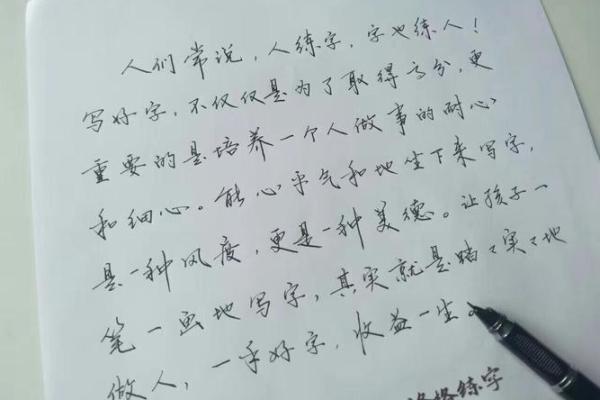 人们常说,人练字,字也练人!
写好字,不仅仅是为了取得高分,更
重要的是培养一个人做事的耐心
和细心。能心平气和地坐下来写字,
是一种风度,更是一种美德。让孩子一
笔一画地写字,其实就是踏〻实〻地
做人,一手好字,收益一生
练字